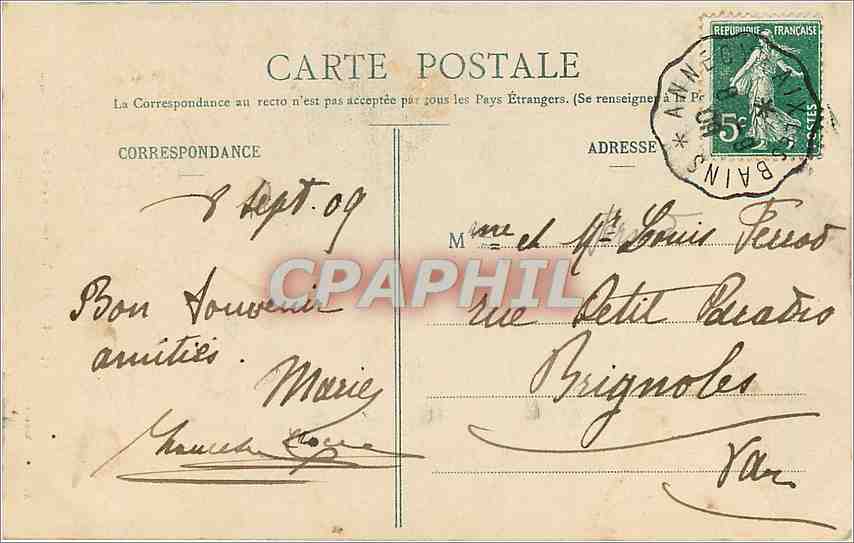 CARTE POSTALE
La Correspondance au recto n'est pas acceptée par tous les Pays Étrangers. (Se renseigner à la Po
CORRESPONDANCE
ADRESSE
REPUBLIQUE FRANÇAISE
5c
POSTES
ANNECY * AIX LES BAINS *
8 Sept. 09
Bon Souvenir
amitiés.
Marie
Mme et Mr Louis Perrod
rue Petit Paradis
Brignoles
Var
CPAPHIL